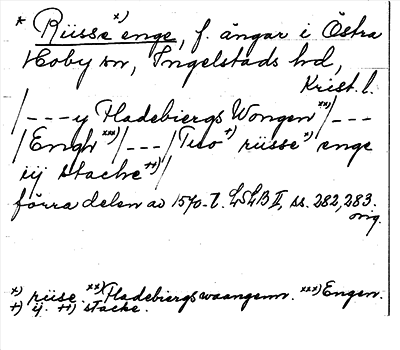 * Rüsse *) enge, f. ängar i Östra
Hoby sn, Ingelstads hd,
Krist. l.
/---y Fladebiergs Wongen **)/---
/Engh ***)/---/Tuo +) rüsse *) enge
iij stacke ++)/
förra delen av 1570-t. LSLB II, ss. 282, 283.
orig.
*) rüse. **) Fladebiergs waangenn. ***) Engen.
+) ij. ++) stacke.